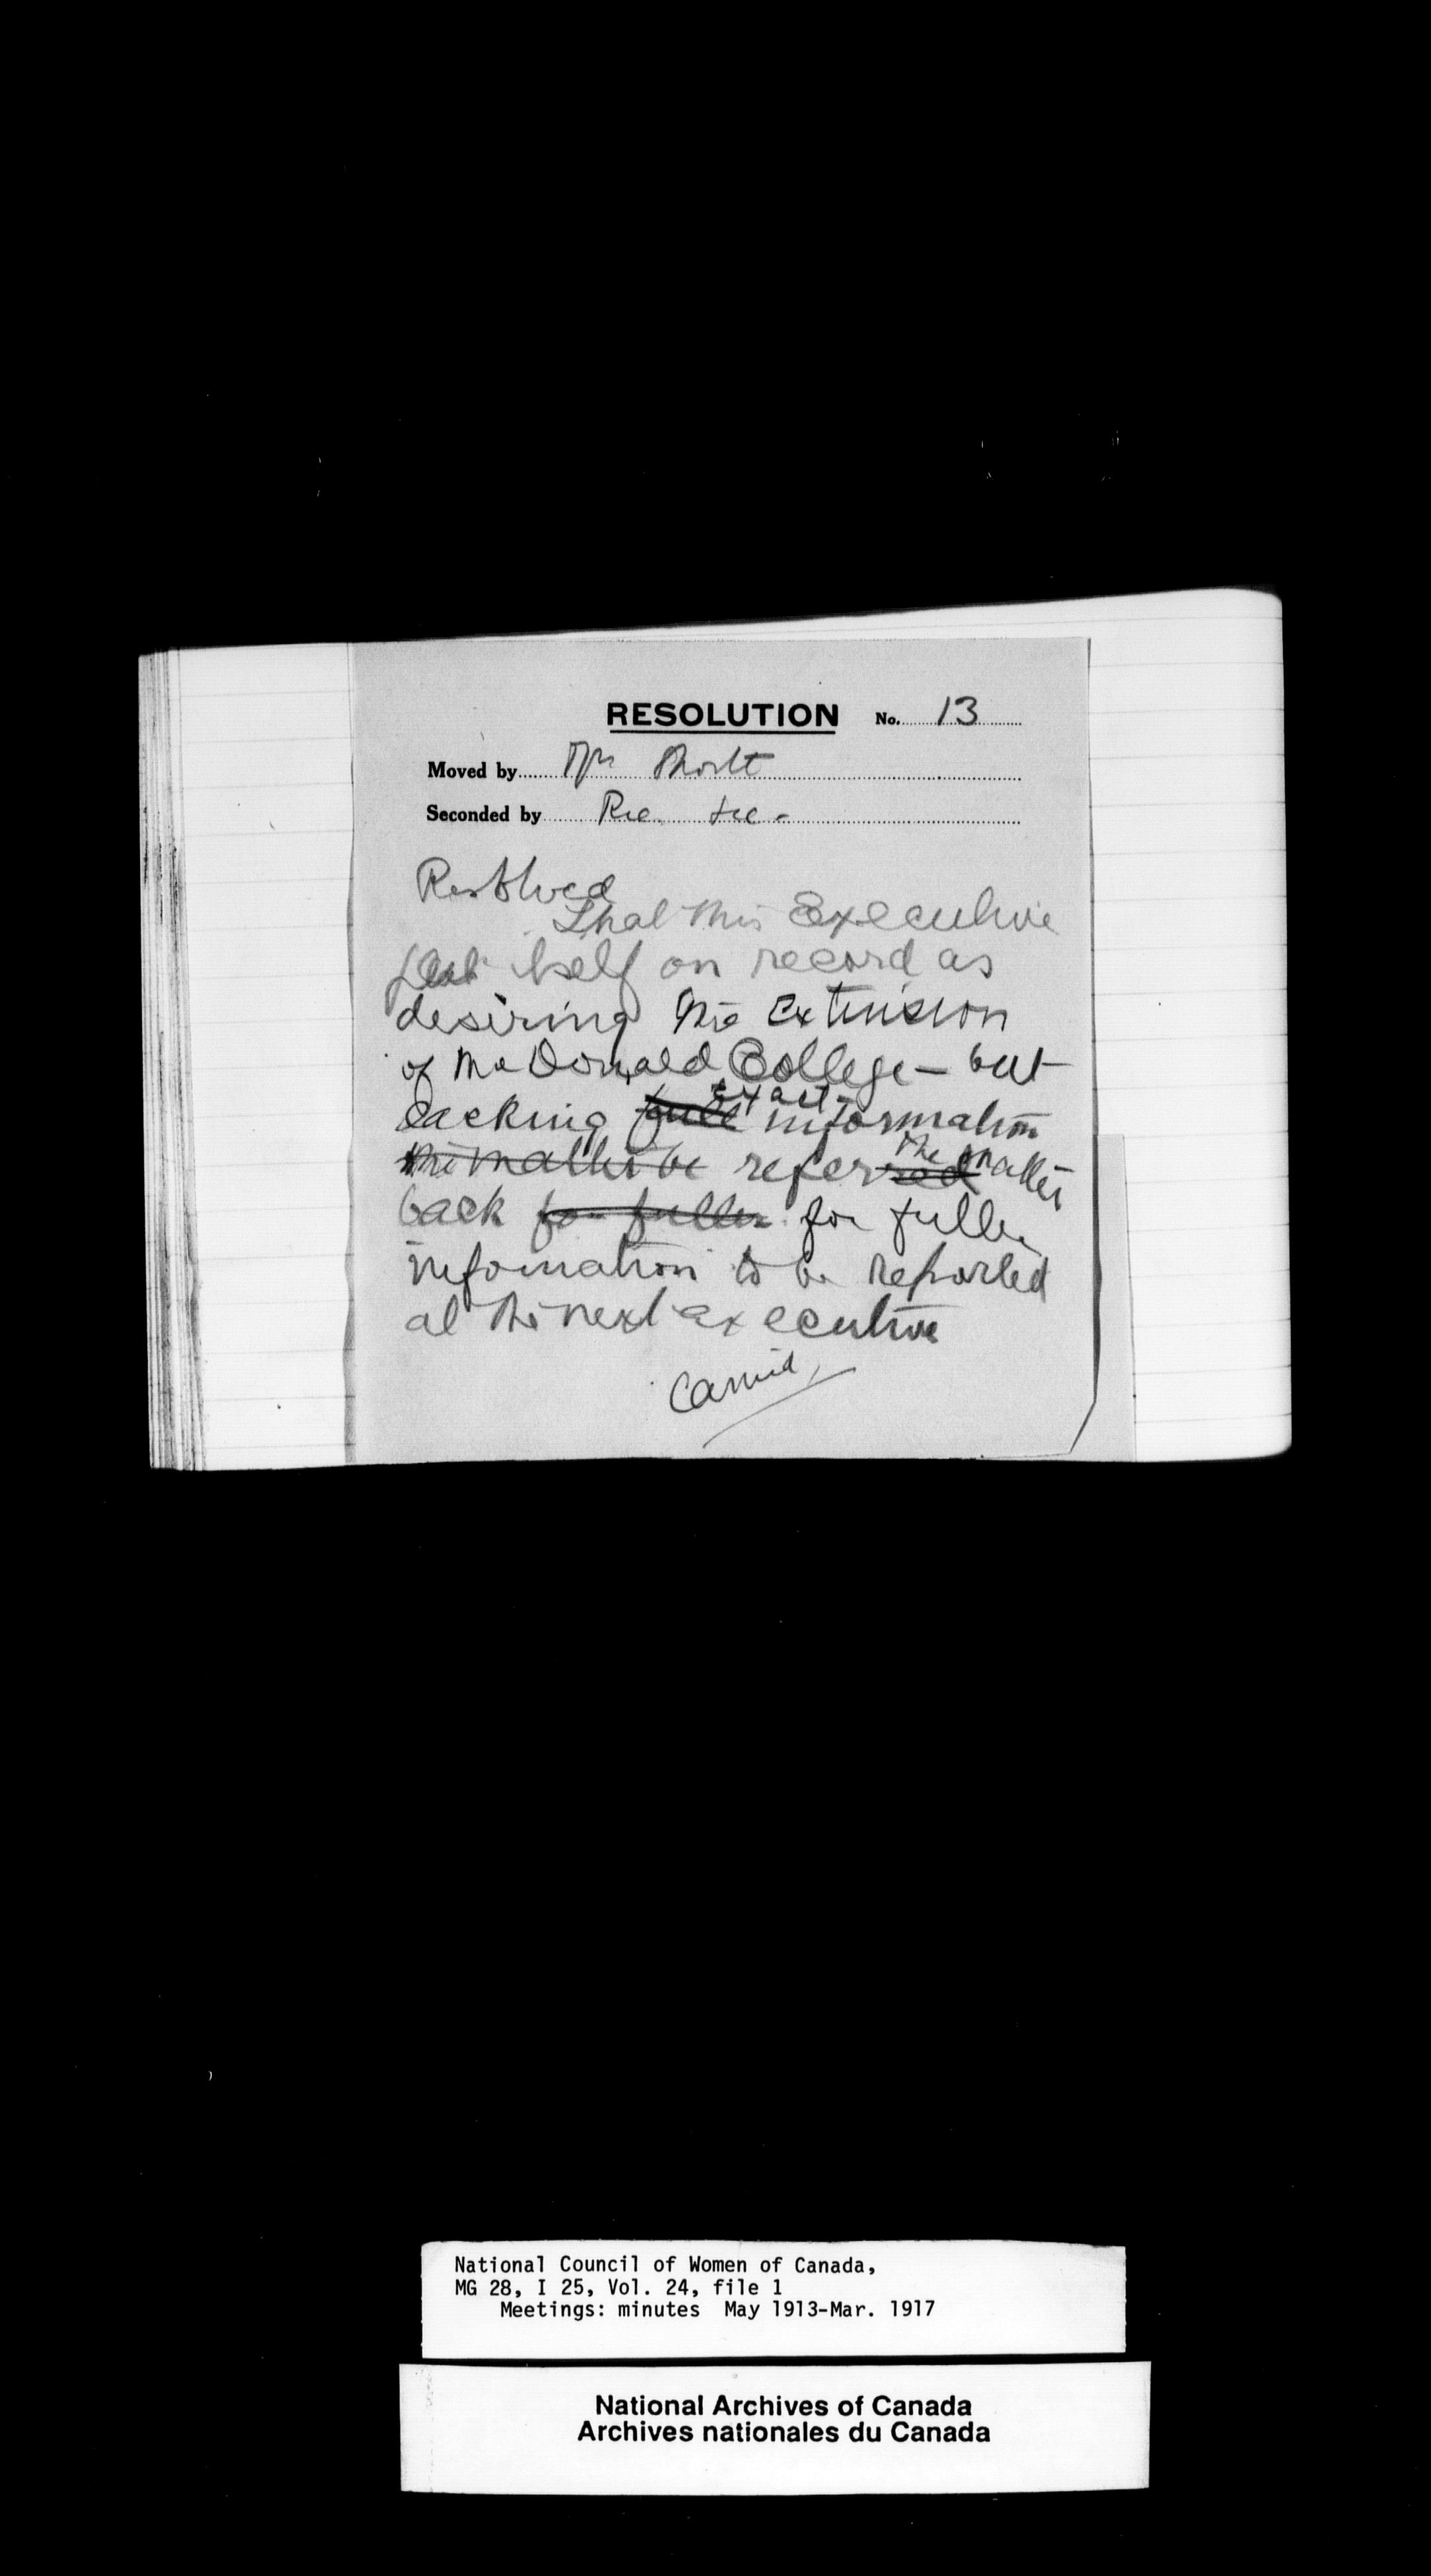 RESOLUTION No. 13
Moved by Mrs Shortt
Seconded by Rec. Sec.
Resolved
That this Executive
put itself on record as
desiring the Extension
of MacDonald College — but
lacking full exact information
the matter be referred the matter
back for fuller for fuller
information to be reported
at the next executive
Carried
National Council of Women of Canada,
MG 28, I 25, Vol. 24, file 1
Meetings: minutes May 1913-Mar. 1917
National Archives of Canada
Archives nationales du Canada